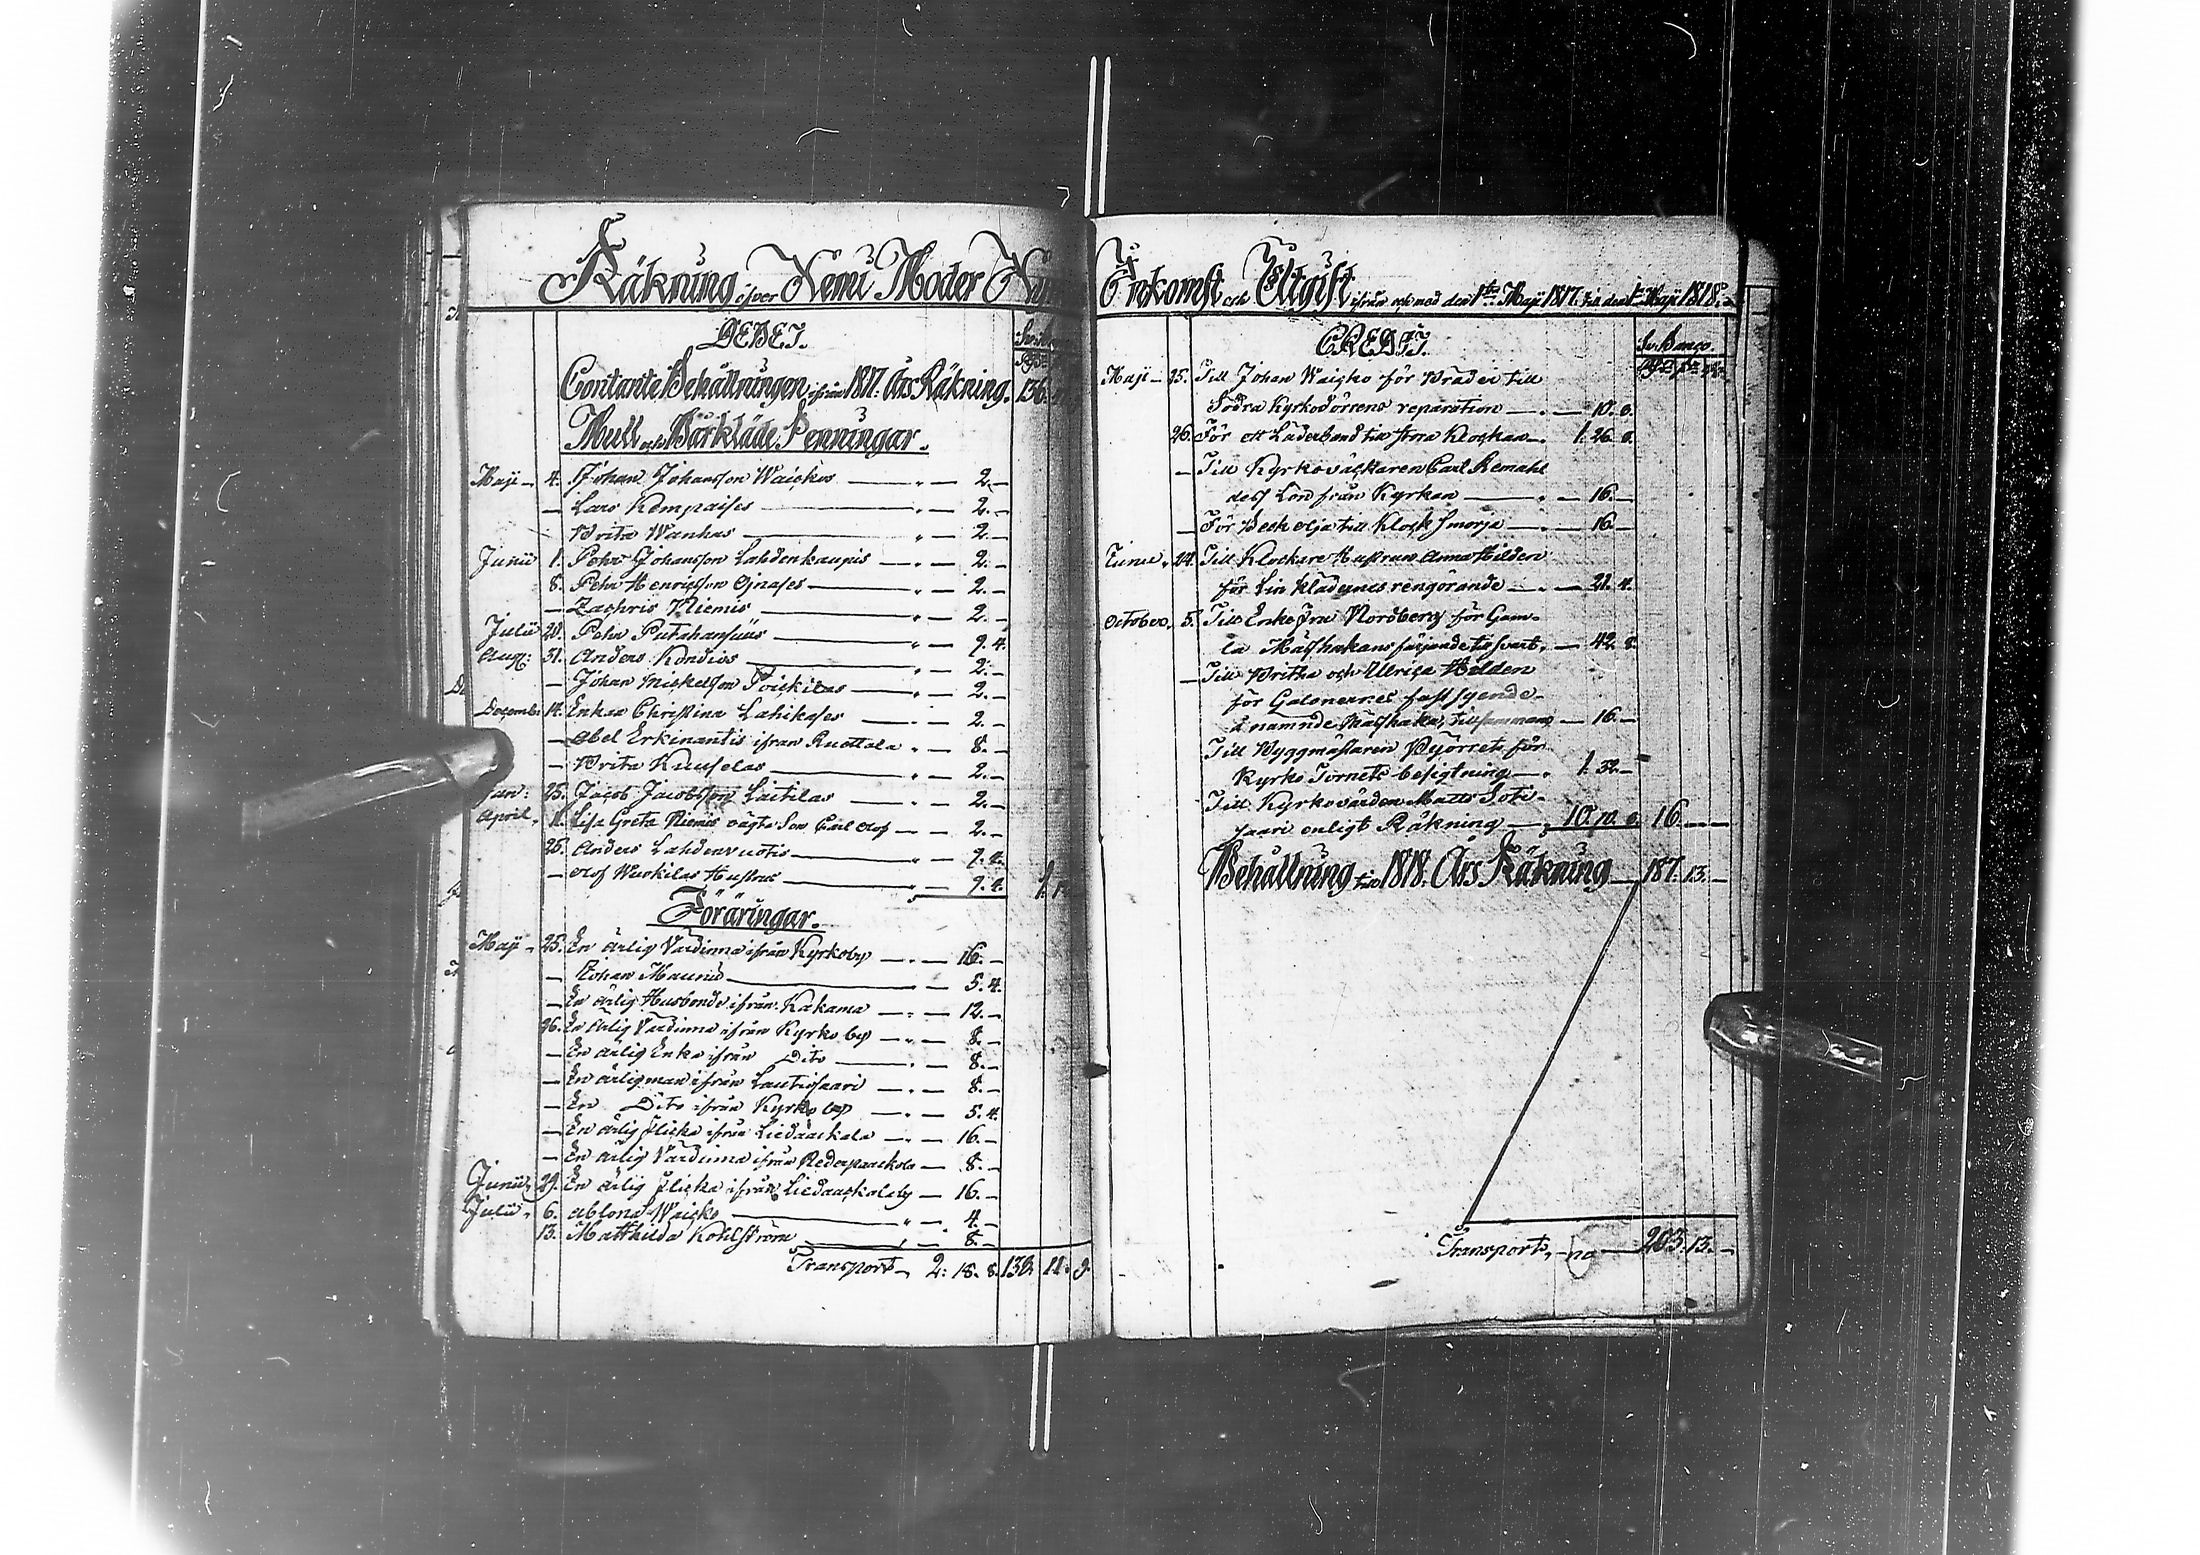 Räkning öfver Kemi Moder Ky
DEBET.
Contante Behållningen ifrån 1817. Års Räkning. 136.
Mull och Bårkläde Penningar.
Maji 4. Johan Johansson Waickos 2.
Lars Kempaises 2.
Brita Wanhas 2.
Junii 1. Pehr Johansson Lahdenkaupis 2.
8. Pehr Henricsson Ojnases 2.
Zachris Niemis 2.
Julii 20. Pehr 9. 4.
Aug: 31. Anders Kondios 2.
Johan Mickelsson Poickilas 2.
Decemb. 14. Enkan Christina Lahikases 2.
Abel Erkinantis ifrån Ruottala 8.
Brita Kuuselas 2.
Jan: 25. Jacob Jacobsson Laitilas 2.
April 11. Lisa Greta Niemis oägta Son Carl Olof 2.
25. Anders Lahdenvuotis 9. 4.
Olof Wuokilas Hustru 9. 4.
Föräringar.
Maji 25. En ärlig Värdinna ifrån Kyrkoby 16.
Johan Maunu 5. 4.
En ärlig Husbonde ifrån Kakama 12.
26. En ärlig Värdinna ifrån Kyrkoby 8.
En ärlig Enka ifrån Dito 8.
En ärlig man ifrån Lautiosaari 8.
En Dito ifrån Kyrkoby 5. 4.
En ärlig flicka ifrån Liedackala 16.
En ärlig Värdinna ifrån 8.
Junii 29. En ärlig flicka ifrån Liedackalaby 16.
Julii 6. Ablona Waicko 4.
13. Matthilda Kohlström 8.
Transport 2: 18. 8. 138. 11. 9.
Inkomst och Utgift ifrån och med den 1sta Maji 1817. till den 1sta Maji 1818.
CREDIT.
Sv. Banco.
Maji 25. Till Johan Waicko för Bräder till
Södra Kyrkodörrens reparation 10. 8.
26. För ett Läderband till stora Klockan 1. 26. 8.
Till Kyrkoväcktaren Carl Remahl
dess Lön från Kyrkan 16.
För Beck olja till Klock smörja 16.
Junii 24. Till Klockare Hustrun Anna Hilden
för Linklädernes rengörande 21. 4.
October 5. Till Enkefru Nordberg för Gam-
la Mässhakans färjande till svart, 42. 8.
Till Britha och Ulrica Hilden
för Galonernes fastsyende
å nämnde Mässhaka, tillsammans 16.
Till Byggmästaren för
Kyrko Tornets besigtning 1. 32.
Till Kyrkovärden Matts Soti-
saari enligt Räkning 10. 10. 8. 16.
Behållning till 1818. Års Räkning 187. 13.
Transport 203. 13.